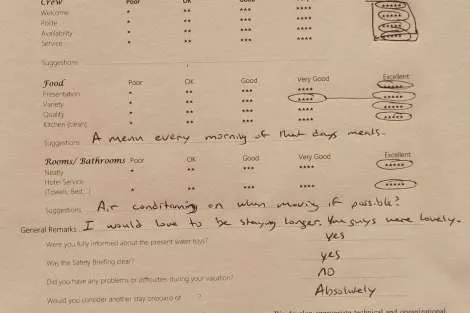 Crew Poor OK Good Very Good
Welcome * ** *** **** *****
Polite * ** *** **** *****
Availability * ** *** **** *****
Service * ** *** **** *****
Suggestions
Food Poor OK Good Very Good Excellent
Presentation * ** *** **** *****
Variety * ** *** **** *****
Quality * ** *** **** *****
Kitchen (clean) * ** *** **** *****
Suggestions A menu every morning of that days meals.
Rooms/ Bathrooms Poor OK Good Very Good Excellent
Neatly * ** *** **** *****
Hotel Service
(Towels, Bed...) * ** *** **** *****
Suggestions Air conditioning on when moving if possible?
General Remarks I would love to be staying longer. You guys were lovely.
Were you fully informed about the present water toys? yes
Was the Safety Briefing clear? yes
Did you have any problems or difficulties during your vacation? no
Would you consider another stay onboard of ? Absolutely
appropriate technical and organizational